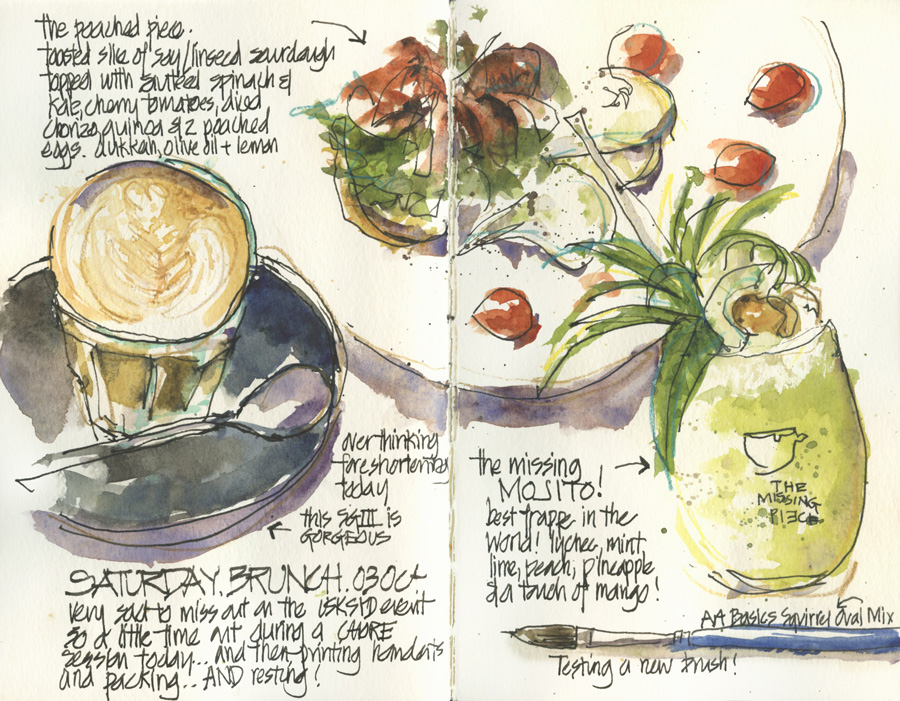 the poached piece.
toasted slice of soy/linseed sourdough
topped with sauteed spinach &
kale, cherry tomatoes, diced
chorizo, quinoa & 2 poached
eggs. dukkah, olive oil + lemon
over thinking
foreshortening
today
this SGIII is
GORGEOUS
SATURDAY. BRUNCH. 03 Oct
very sad to miss out on the USKSYD event
so a little time out during a CHORE
session today... and then printing handouts
and packing... AND resting!
the missing
MOJITO!
best frappe in the
world! lychee, mint,
lime, peach, pineapple
& a touch of mango!
THE
MISSING
PIECE
Art Basics Squirrel Oval Mix
Testing a new brush!